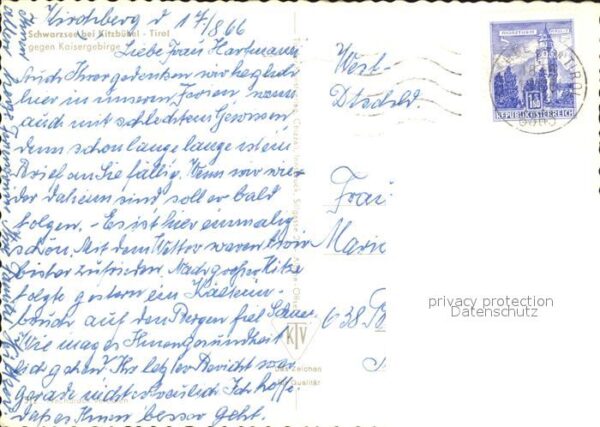 Kirchberg d 17/8 66
Schwarzsee bei Kitzbühel - Tirol
gegen Kaisergebirge
Liebe Frau Hartmann
Auch Ihrer gedenken wir herzlich
hier in unseren Ferien wenn
auch mit schlechtem Gewissen
denn schon lange lange ist ein
Brief an Sie fällig. Wenn wir wie-
der daheim sind soll er bald
folgen. - Es ist hier einmalig
schön. Mit dem Wetter waren wir
bisher zufrieden. Nach großer Hitze
folgte gestern ein Kälteein-
bruch auf den Bergen fiel Schnee.
Wie mag es Ihnen gesundheit-
lich gehen? Ihr letzter Bericht war
gerade nicht erfreulich Ich hoffe,
daß es Ihnen besser geht.
West-
Dtschld
Frau
Marie
638
KTV
Das Zeichen
für Qualität
REPUBLIK ÖSTERREICH
privacy protection
Datenschutz